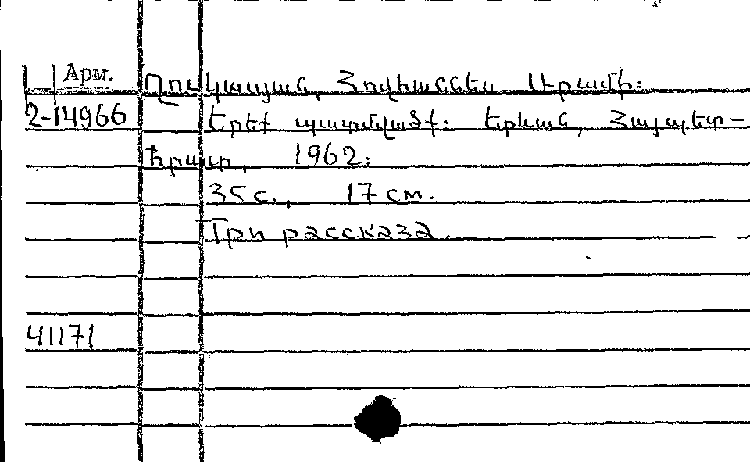 Арм. Ղուկասյան, Հովհաննես Արամի:
2-14966 Երեք պատմվածք: Երևան, Հայպետ-
հրատ, 1962:
35 с., 17 см.
Три рассказа.
41171